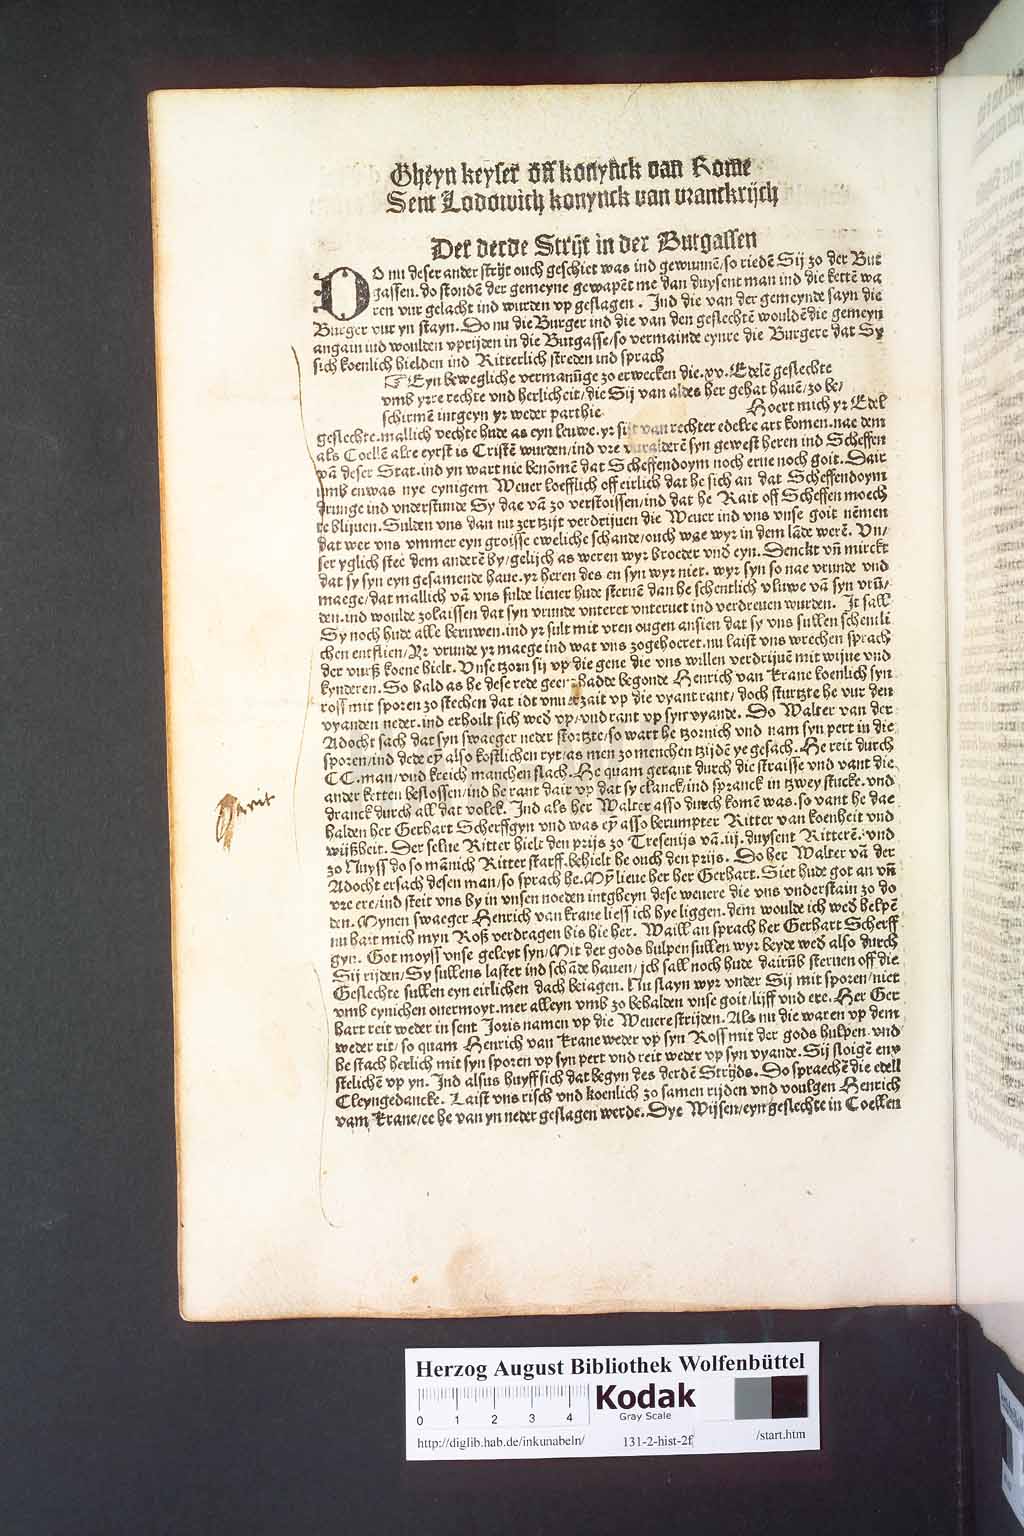 Gheyn keyser off konynck van Rome
Sent Lodowich konynck van vranckrijch
Der derde Strijt in der Burgassen
DO nu deser ander strijt ouch geschiet was ind gewunnē/so riedē Sij zo der Bur
gassen. do stondē der gemeyne gewapēt me dan duysent man ind die kettē wa
ren vur gelacht ind wurden vp geslagen. Ind die van der gemeynde sayn die
Burger vur yn stayn. Do nu die Burger ind die van den geslechtē wouldē die gemeyn
angain uid woulden vprijden in die Burgasse/so vermainde eynre die Burgere dat Sy
sich koenlich hielden ind Ritterlich streden ind sprach
Eyn bewegliche vermanūge zo erwecken die .xv. Edelē geslechte
vmb yrre rechte vnd herlicheit/die Sij van aldes her gehat hauē/zo be/
schirmē intgeyn yr weder parthie Hoert mich yr Edel
geslechte. mallich vechte hude as eyn leuwe. yr sijt van rechter edelre art komen. nae dem
als Coellē alre eyrst is Cristē wurden/ind vre vuralderē syn gewest heren ind Scheffen
vā deser Stat. ind yn wart nie benōmē dat Scheffendoym noch erue noch goit. Dair
umb enwas nye eynigem Weuer loefflich off eirlich dat he sich an dat Scheffendoym
drunge ind vnderstunde Sy dae vā zo verstoissen/ind dat he Rait off Scheffen moech
te blijuen. Sulden vns dan nu zer tzijt verdrijuen die Weuer ind vns vnse goit nēmen
dat wer vns vmmer eyn groisse eweliche schande/ouch wae wyr in dem lāde werē. Vn/
ser yglich stee dem anderē by/gelijch as weren wyr broeder vnd eyn. Denckt vn̄ mirckt
dat sy syn eyn gesamende haue. yr heren des en syn wyr niet. wyr syn so nae vrunde vnd
maege/dat mallich vā vns sulde lieuer hude steruē dan he schentlich vluwe vā syn vrū/
den. ind woulde zolaissen dat syn vrunde vnteret vnteruet ind verdreuen wurden. It sall
Sy noch hude alle beruwen. ind yr sult mit vren ougen ansien dat sy vns sullen schentli
chen entflien/Nu vrunde yr maege ind wat vns zogehoeret. nu laist vns wrechen sprach
der vurß koene hielt. Vnse tzorn sij vp die gene die vns willen verdrijuē mit wijue vnd
kynderen. So bald as he dese rede geent hadde begonde Henrich van Krane koenlich syn
ross mit sporen zo stechen dat idt vnuerzait vp die vyant rant/ doch sturtzte he vur den
vyanden neder. ind erhoilt sich wed vp/vnd rant vp syn vyande. Do Walter van der
Adocht sach dat syn swaeger neder stortzte/so wart he tzornich vnd nam syn pert in die
sporen/ind dede eȳ also kostlichen ryt/as men zo menchen tzijdē ye gesach. He reit durch
CC. man/vnd kreich manchen slach. He quam gerant durch die straisse vnd vant die
ander ketten beslossen/ind he rant dair vp dat sy clanck/ind spranck in tzwey stucke. vnd
dranck durch all dat volck. Ind als her Walter asso durch komē was. so vant he dae
halden her Gerhart Scherffgyn vnd was eȳ asso berumpter Ritter van koenheit vnd
wijßheit. Der selue Ritter hielt den prijs zo Tresenijs vā .iij. duysent Ritterē. vnd
zo Nuyss do so mānich Ritter starff. behielt he ouch den prijs. Do her Walter vā der
Adocht ersach desen man/so sprach he. Mȳ lieue her her Gerhart. Siet hude got an vn̄
vre ere/ind steit vns by in vnsen noeden intgheyn dese weuere die vns vnderstain zo do
den. Mynen swaeger Henrich van krane liess ich hye liggen. dem woulde ich wed helpē
nu hait mich myn Roß verdragen bis hie her. Waill an sprach her Gerhart Scherff
gyn. Got moyss vnse geleyt syn/Mit der gods hulpen sullen wyr beyde wed also durch
Sij rijden/Sy sullens laster ind schāde hauen/ich sall noch hude dairūb steruen off die
Geslechte sullen eyn eirlichen dach beiagen. Nu slayn wyr vnder Sij mit sporen/niet
vmb eynichen ouermoyt. mer alleyn vmb zo behalden vnse goit/lijff vnd ere. Her Ger
hart reit weder in sent Joris namen vp die Weuere strijden. Als nu die waren vp dem
weder rit/so quam Henrich van Krane weder vp syn Ross mit der gods hulpen. vnd
he stach herlich mit syn sporen vp syn pert vnd reit weder vp syn vyande. Sij sloigē eny
stelichē vp yn. Ind alsus huyff sich dat begyn des derdē Strijds. Do spraechē die edell
Cleyngedancke. Laist vns risch vnd koenlich zo samen rijden vnd voulgen Henrich
vam Krane/ee he van yn neder geslagen werde. Dye Wijsen/eyn geslechte in Coellen
Herzog August Bibliothek Wolfenbüttel
0 1 2 3 4
Kodak
Gray Scale
http://diglib.hab.de/inkunabeln/ 131-2-hist-2f /start.htm